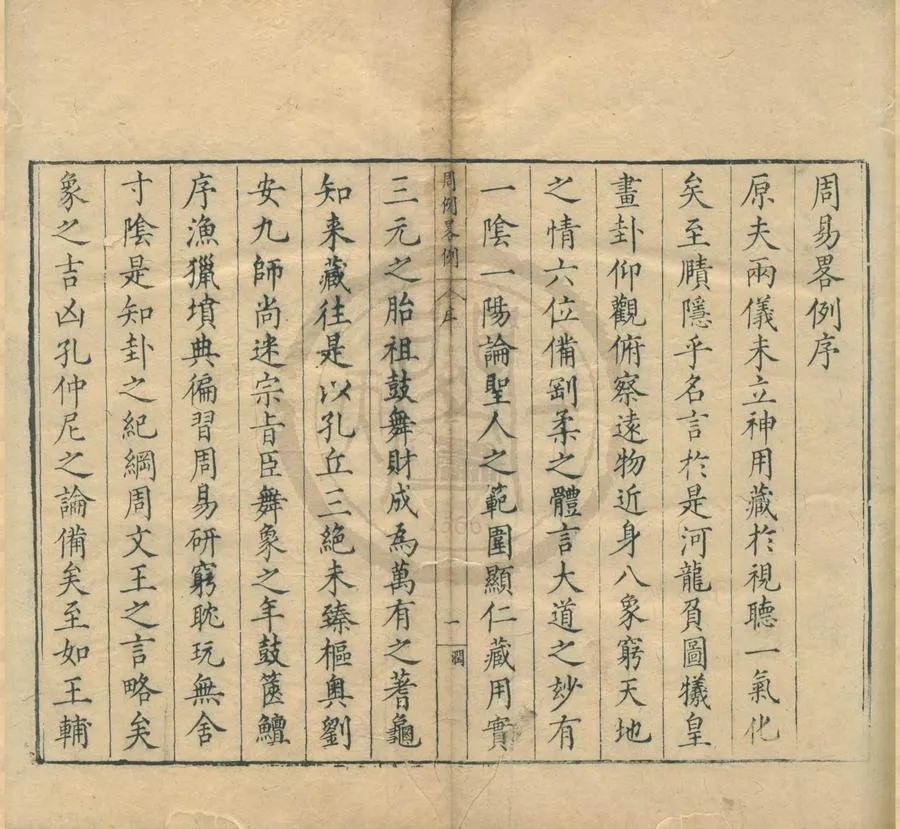 周易畧例序
原夫兩儀未立神用藏於視聽一氣化
矣至賾隱乎名言於是河龍負圖犧皇
畫卦仰觀俯察遠物近身八象窮天地
之情六位備剛柔之體言大道之妙有
一陰一陽論聖人之範圍顯仁藏用實
周例畧例 序 一 潤
三元之胎祖鼓舞財成為萬有之蓍龜
知来藏往是以孔丘三絕未臻樞奧劉
安九師尚迷宗旨臣舞象之年鼓篋鱣
序漁獵墳典徧習周易研窮耽玩無舍
寸陰是知卦之紀綱周文王之言略矣
象之吉凶孔仲尼之論備矣至如王輔